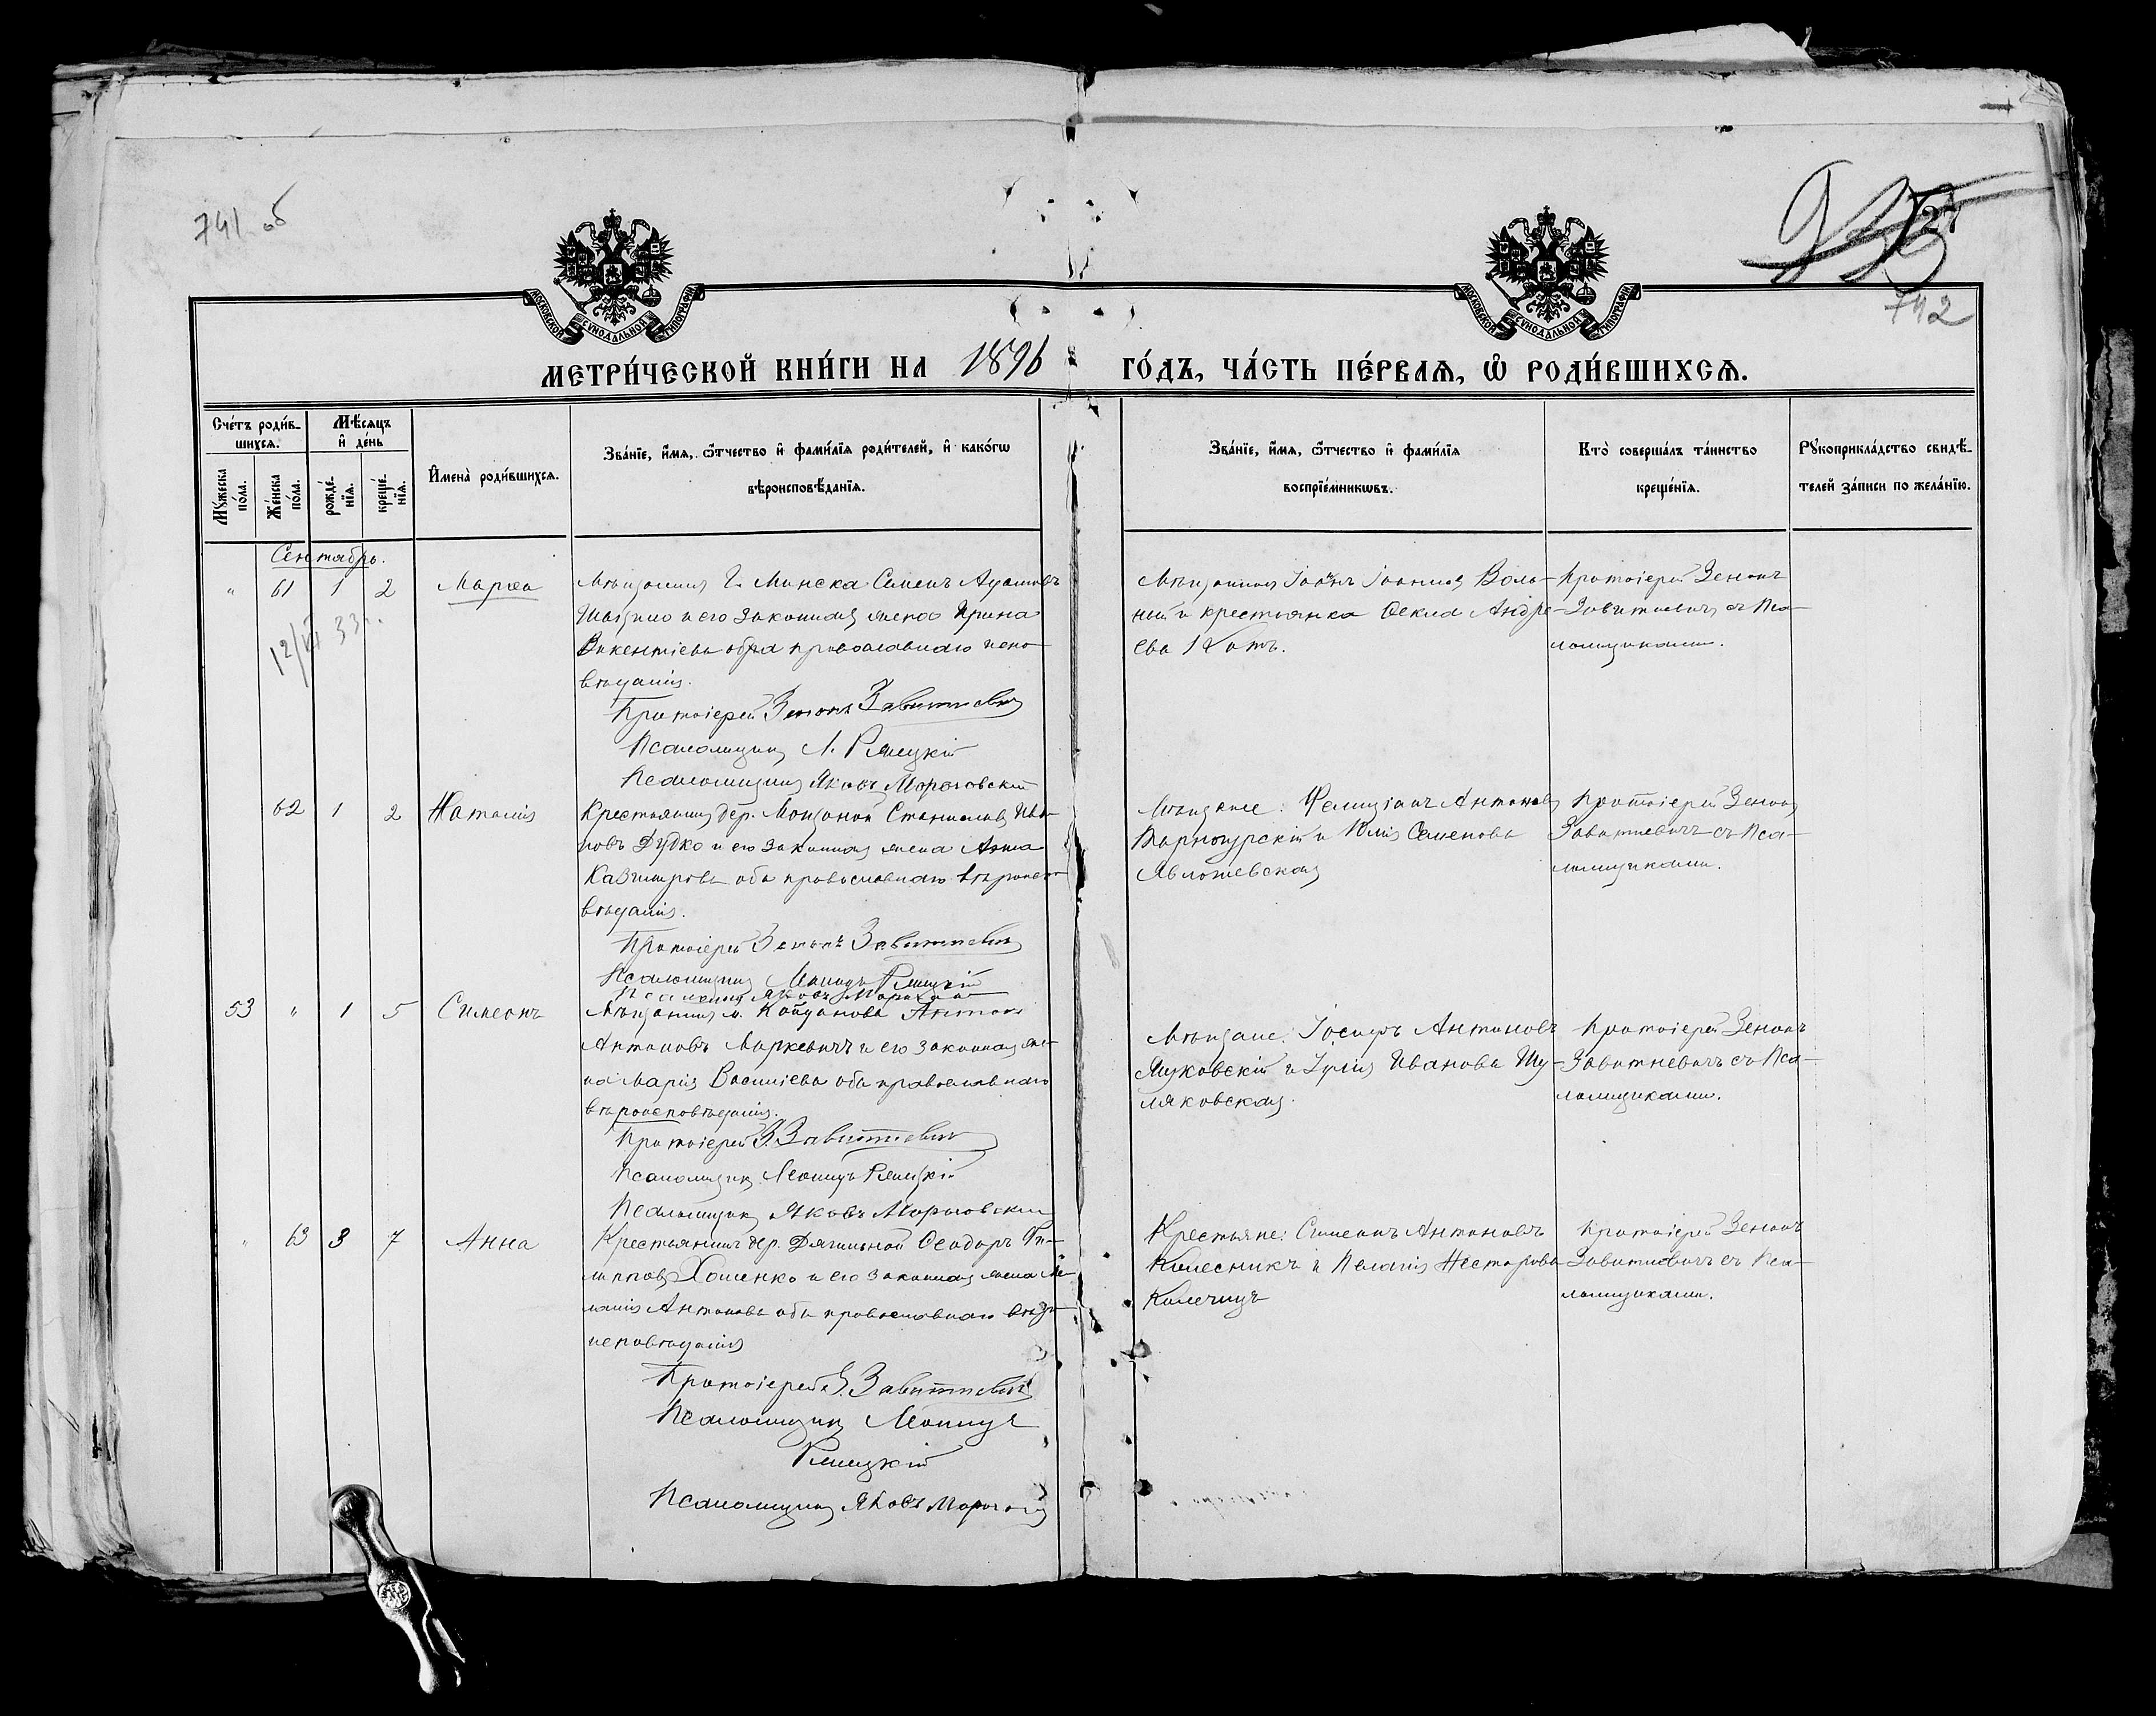 741 об
742
МОСКОВСКОЙ СѴНОДАЛЬНОЙ ТИПОГРАФІИ
МОСКОВСКОЙ СѴНОДАЛЬНОЙ ТИПОГРАФІИ
МЕТРИ́ЧЕСКОЙ КНИ́ГИ НА 1896 ГО́ДЪ, ЧА́СТЬ ПЕ́РВАѦ, Ѽ РОДИ́ВШИХСѦ.
Сче́тъ роди́в-
шихсѧ.
Мꙋ́жеска по́ла.
Же́нска по́ла.
Мѣ́сѧцъ
и҆ де́нь
рожде́-
нїѧ.
креще́-
нїѧ.
И҆мена̀ роди́вшихсѧ.
Зва́нїе, и҆́мѧ, ѻ҆́тчество и҆ фами́лїѧ роди́телей, и҆ како́гѡ
вѣроисповѣ́данїѧ.
Зва́нїе, и҆́мѧ, ѻ҆́тчество и҆ фами́лїѧ
воспрїе́мникѡвъ.
Кто̀ соверша́лъ та́инство
креще́нїѧ.
Рꙋкоприкла́дство свидѣ́-
телей за́писи по жела́нїю.
Сентябрь.
" 61 1 2 Марѳа
12/VI 33 г.
Мѣщанинъ г. Минска Семенъ Адамовъ
и его законная жена Ирина
Викентіева оба православнаго испо-
вѣданія.
Протоіерей Зенонъ Завитневичъ
Псаломщикъ Л.
Псаломщикъ Яковъ
Мѣщанинъ Іоаннъ Іоанновъ Воль-
ный и крестьянка Ѳекла Андре-
ева
Протоіерей Зенонъ
Завитневичъ съ Пса-
ломщиками.
62 1 2 Наталія
Крестьянинъ дер. Станиславъ Ива-
новъ Дудко и его законная жена Анна
Казимірова оба православнаго вѣроиспо-
вѣданія.
Протоіерей Зенонъ Завитневичъ
Псаломщикъ Леонидъ
Псаломщикъ Яковъ
Мѣщане: Фелиціанъ Антоновъ
и Юлія Семенова
Протоіерей Зенонъ
Завитневичъ съ Пса-
ломщиками.
53 " 1 5 Симеонъ
Мѣщанинъ м. Койданова Антонъ
Антоновъ Маркевичъ и его законная же-
на Марія Василіева оба православнаго
вѣроисповѣданія.
Протоіерей З. Завитневичъ
Псаломщикъ Леонидъ
Псаломщикъ Яковъ
Мѣщане: Іосифъ Антоновъ
и Иванова Шу-
ляковская.
Протоіерей Зенонъ
Завитневичъ съ Пса-
ломщиками.
" 63 3 7 Анна
Крестьянинъ дер. Дягильной Ѳеодоръ Фи-
липповъ Хоменко и его законная жена Ме-
ланія Антонова оба православнаго вѣро-
исповѣданія
Протоіерей З. Завитневичъ
Псаломщикъ Леонидъ
Псаломщикъ Яковъ
Крестьяне: Симеонъ Антоновъ
Колесникъ и Пелагія Несторова
Протоіерей Зенонъ
Завитневичъ съ Пса-
ломщиками.